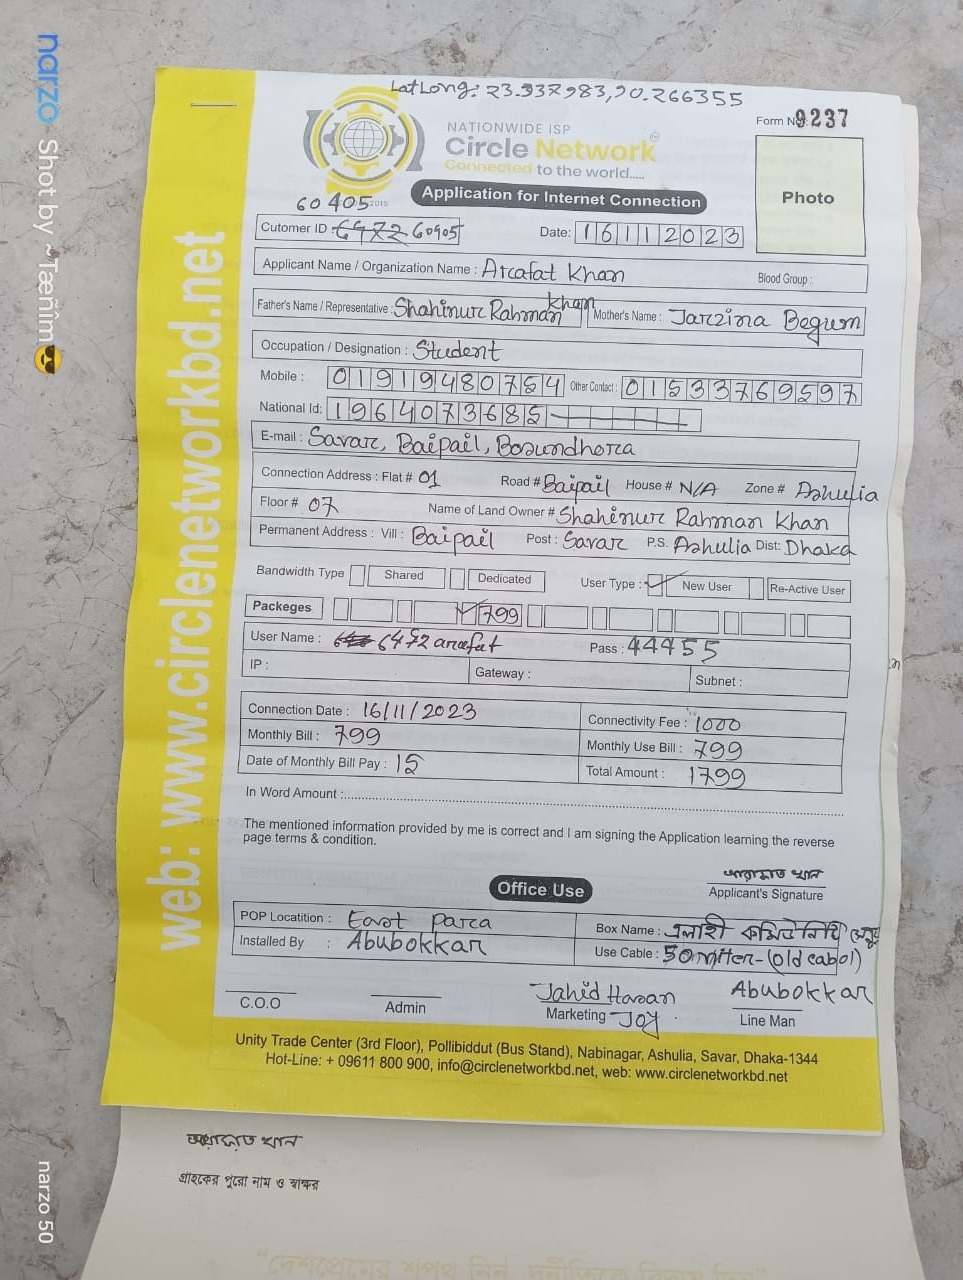 LatLong: 23.937983,90.266355
Form No: 9237
NATIONWIDE ISP
Circle Network
Connected to the world.....
Photo
Application for Internet Connection
60405
Cutomer ID : 6472 60405
Date: 16112023
Applicant Name / Organization Name : Arafat Khan Blood Group :
Father's Name / Representative : Shahinur Rahman Khan Mother's Name : Jarzina Begum
Occupation / Designation : Student
Mobile : 01919480754 Other Contact : 01533769597
National Id: 1964073685
E-mail : Savar, Baipail, Bosundhora
Connection Address : Flat # 01 Road # Baipail House # N/A Zone # Ashulia
Floor # 07 Name of Land Owner # Shahinur Rahman Khan
Permanent Address : Vill : Baipail Post : Savar P.S. Ashulia Dist: Dhaka
Bandwidth Type Shared Dedicated User Type : New User Re-Active User
Packeges 799
User Name : 6472 arafat Pass : 44455
IP : Gateway : Subnet :
Connection Date : 16/11/2023 Connectivity Fee : 1000
Monthly Bill : 799 Monthly Use Bill : 799
Date of Monthly Bill Pay : 15 Total Amount : 1799
In Word Amount :
The mentioned information provided by me is correct and I am signing the Application learning the reverse
page terms & condition.
আরাফাত খান
Applicant's Signature
Office Use
POP Locatition : East Para Box Name : এলাহী কমিউনিটি
Installed By : Abubokkar Use Cable : 50 miter-(old cabol)
Jahid Hasan Abubokkar
C.O.O Admin Marketing Joy Line Man
Unity Trade Center (3rd Floor), Pollibiddut (Bus Stand), Nabinagar, Ashulia, Savar, Dhaka-1344
Hot-Line: + 09611 800 900, info@circlenetworkbd.net, web: www.circlenetworkbd.net
web: www.circlenetworkbd.net
আরাফাত খান
গ্রাহকের পুরো নাম ও স্বাক্ষর
narzo Shot by ~Tæñîm😎
narzo 50